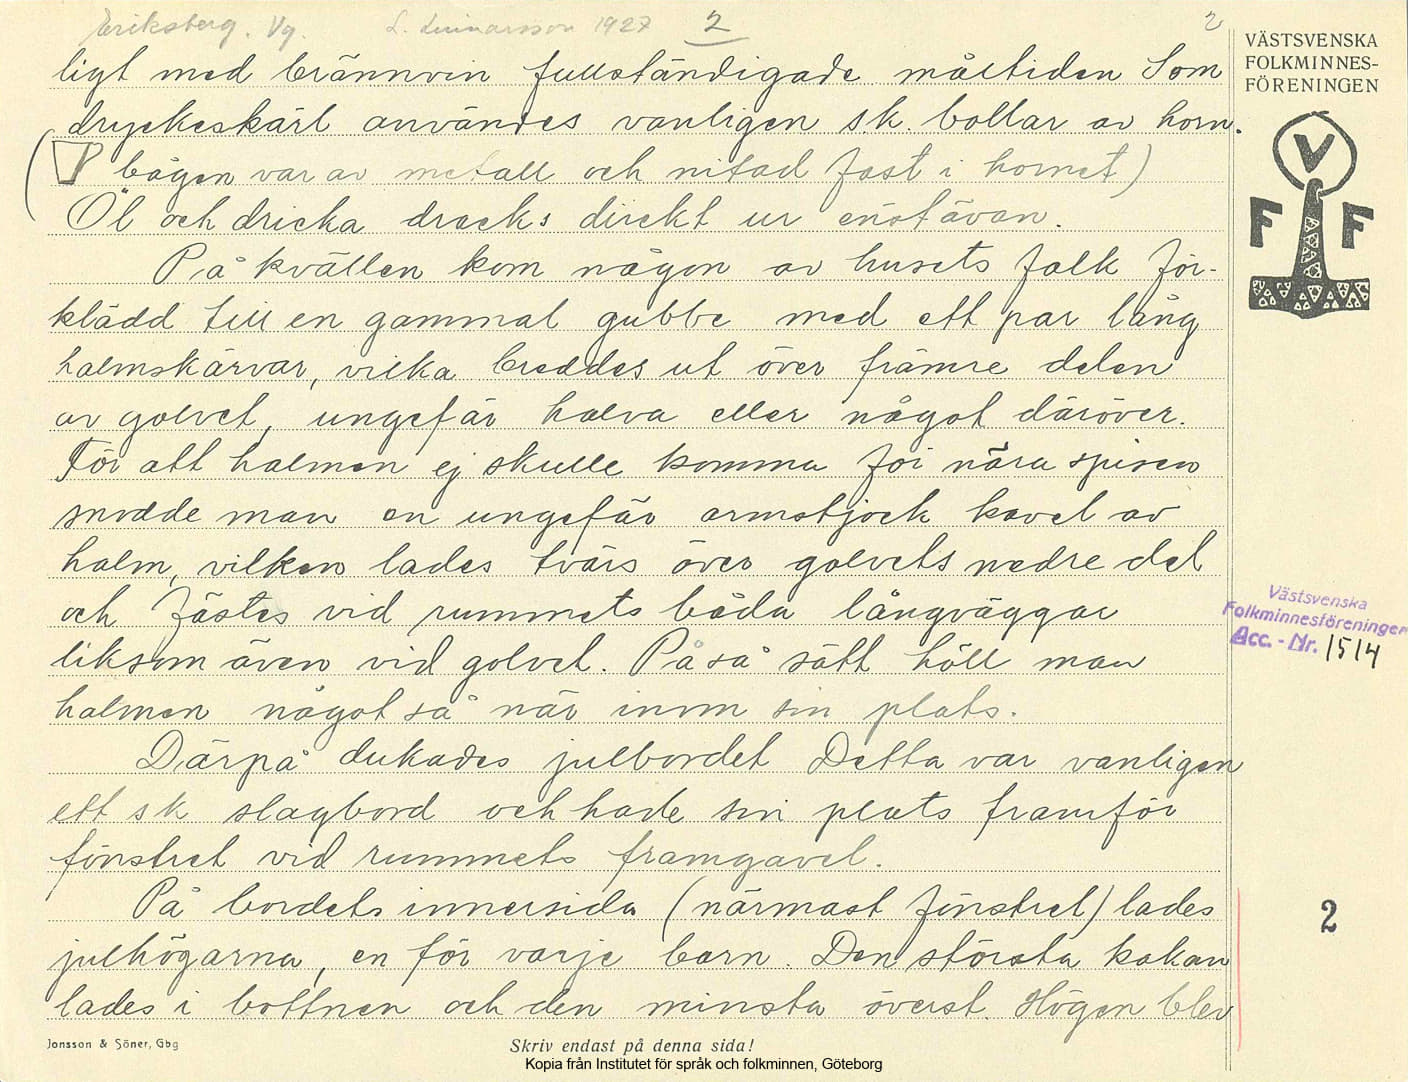 Eriksberg. Vg. L. Linnarsson 1927 2 2
VÄSTSVENSKA
FOLKMINNES-
FÖRENINGEN
V
F F
ligt med brännvin fullständigade måltiden Som
dryckeskärl användes vanligen sk. bollar av horn.
( bågen var av metall och nitad fast i hornet)
Öl och dricka dracks direkt ur enstävan.
På kvällen kom någon av husets folk för-
klädd till en gammal gubbe med ett par lång
halmskärvar, vilka breddes ut över främre delen
av golvet, ungefär halva eller något däröver.
För att halmen ej skulle komma för nära spisen
snodde man en ungefär armstjock kavel av
halm, vilken lades tvärs över golvets nedre del
och fästes vid rummets båda långväggar
liksom även vid golvet. På så sätt höll man
halmen något så när inom sin plats.
Därpå dukades julbordet Detta var vanligen
ett sk slagbord och hade sin plats framför
fönstret vid rummets framgavel.
På bordets innersida (närmast fönstret) lades
julhögarna, en för varje barn. Den största kakan
lades i bottnen och den minsta överst. Högen blev
Västsvenska
Folkminnesföreningen
Acc. - Nr. 1514
2
Jonsson & Söner, Gbg
Skriv endast på denna sida!
Kopia från Institutet för språk och folkminnen, Göteborg